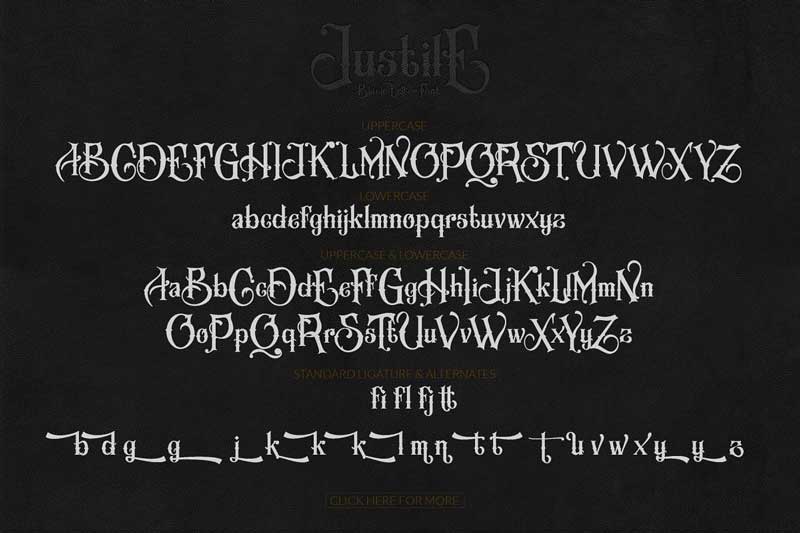 Justile
UPPERCASE
ABCDEFGHIJKLMNOPQRSTUVWXYZ
LOWERCASE
abcdefghijklmnopqrstuvwxyz
UPPERCASE & LOWERCASE
AaBbCcDdEeFfGgHhIiJjKkLlMmNn
OoPpQqRrSsTtUuVvWwXxYyZz
STANDARD LIGATURE & ALTERNATES
fi fl fj tt
b d g g j k k k l m n t t t u v w x y y z
CLICK HERE FOR MORE